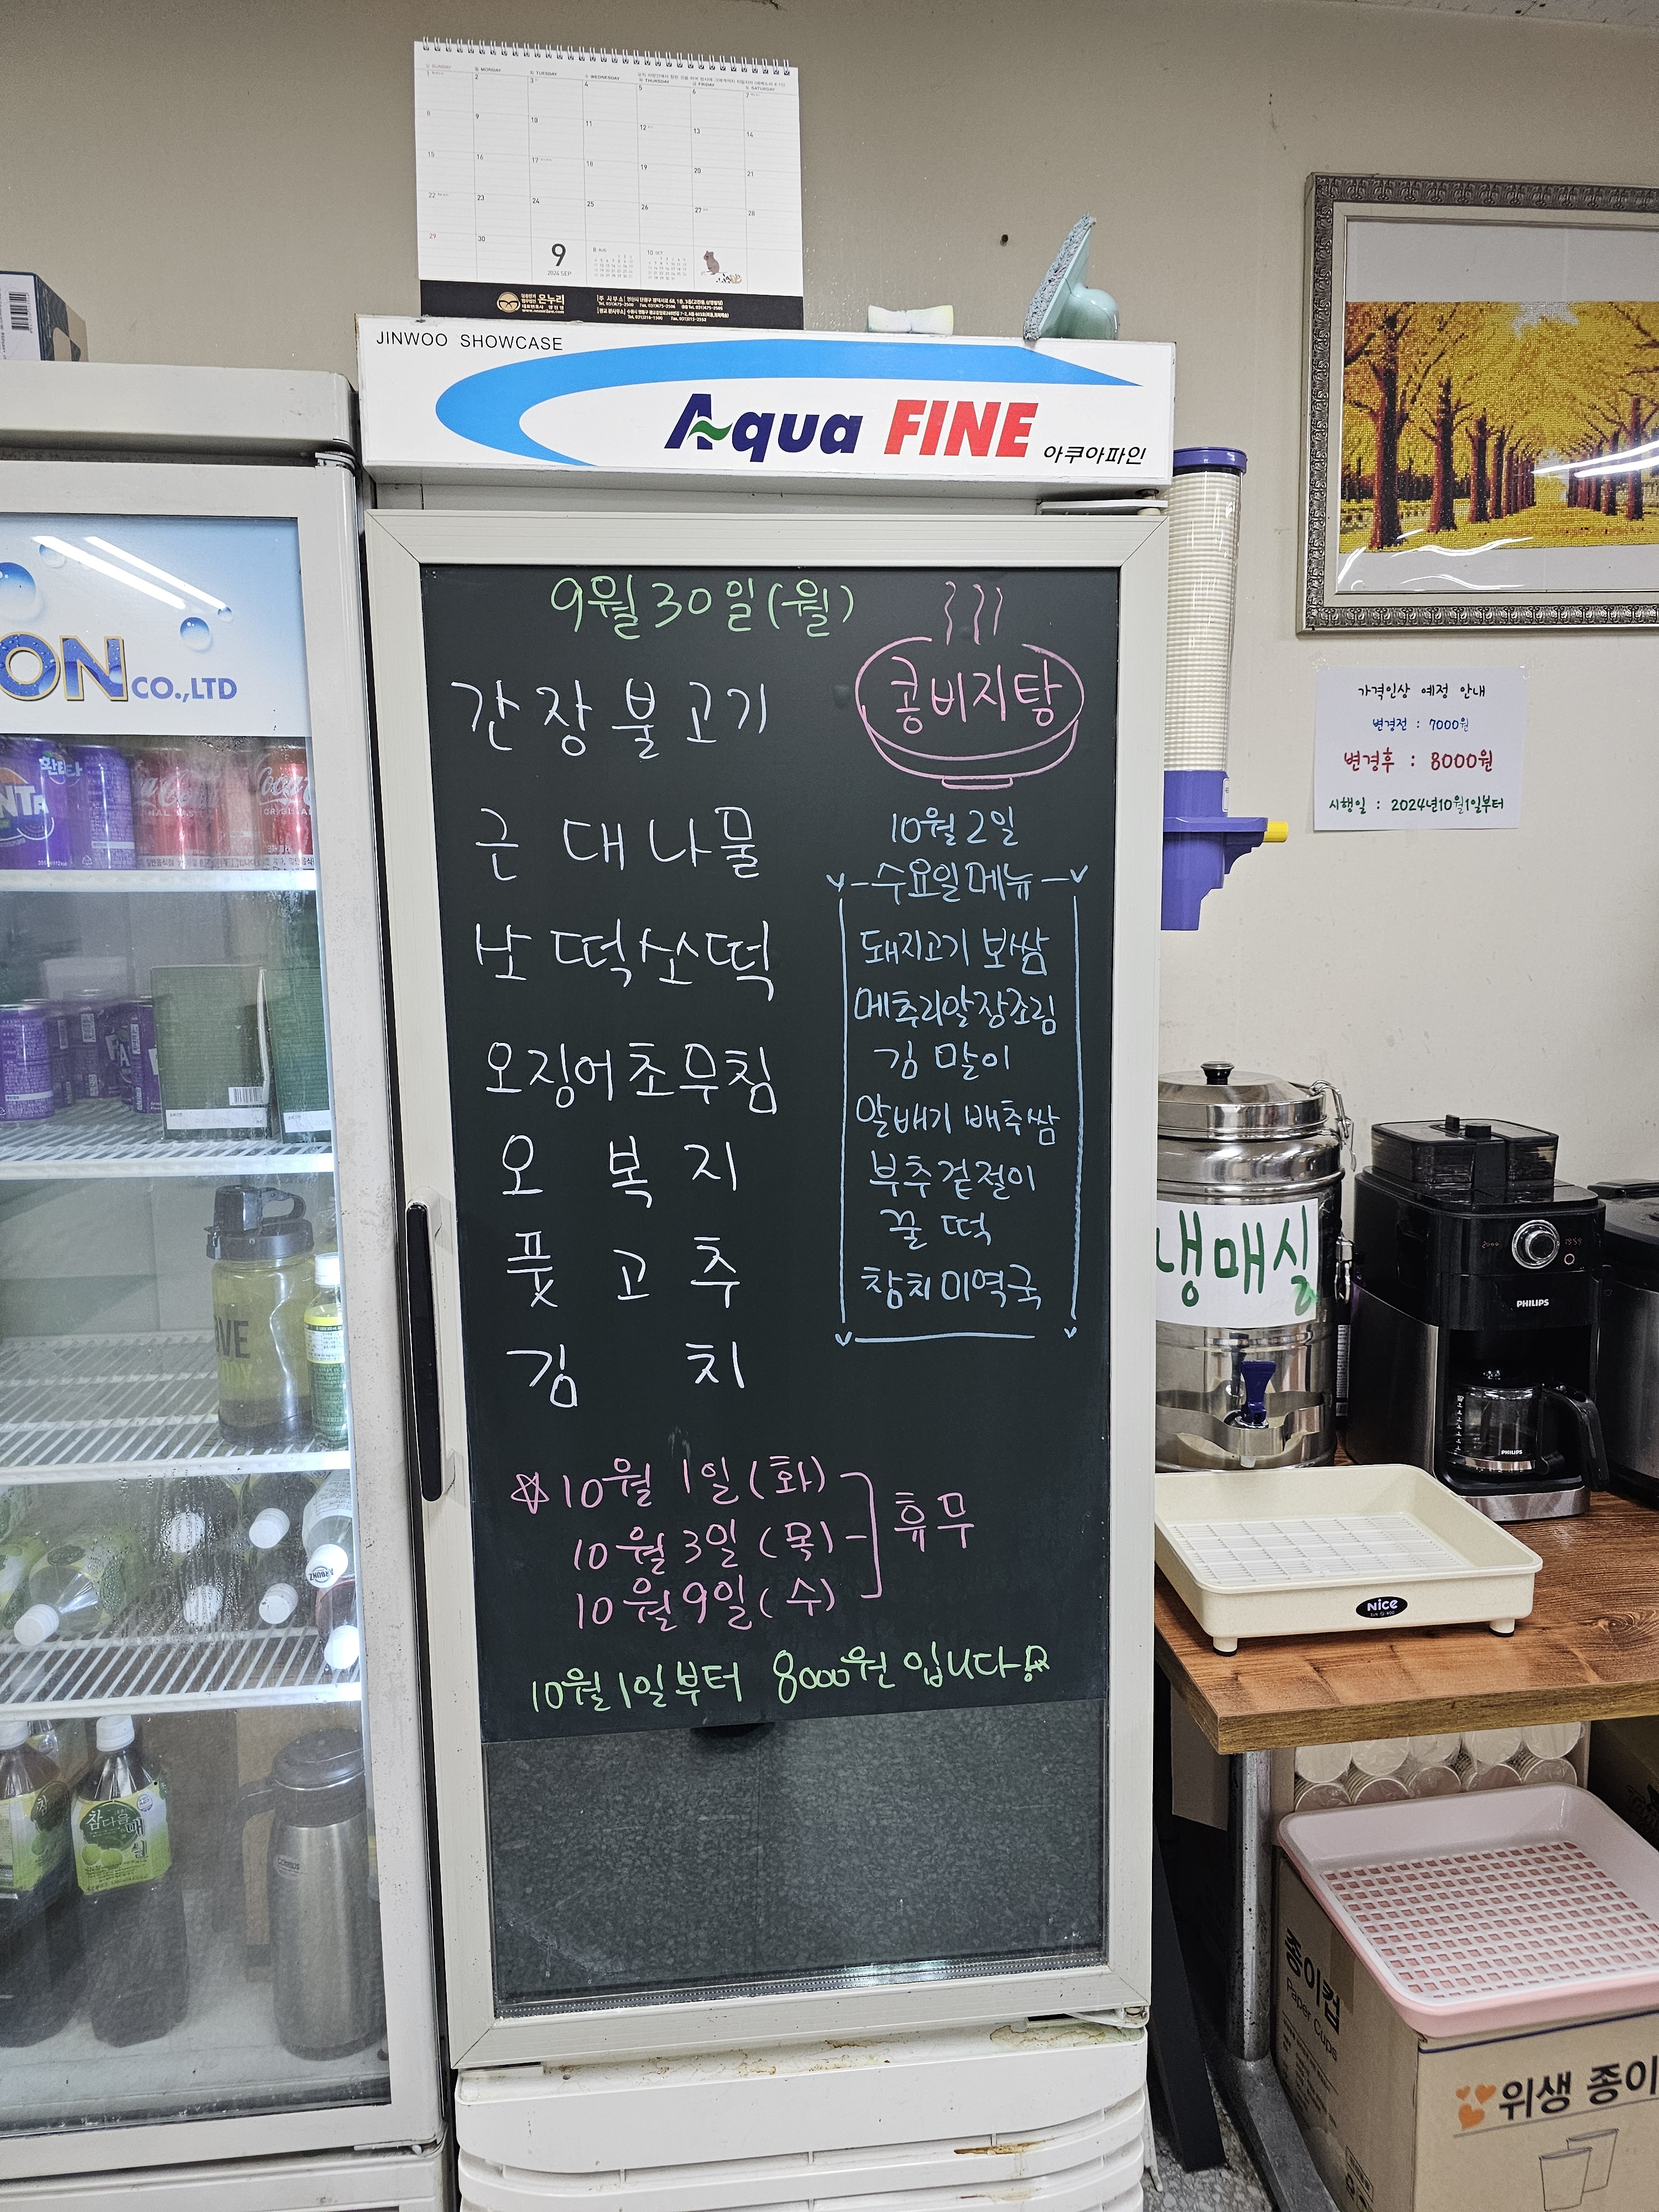 SUNDAY MONDAY TUESDAY WEDNESDAY THURSDAY FRIDAY SATURDAY
1 2 3 4 5 6 7
8 9 10 11 12 13 14
15 16 17 18 19 20 21
22 23 24 25 26 27 28
29 30
9
2024 SEP
온누리
JINWOO SHOWCASE
Aqua FINE 아쿠아파인
ON CO.,LTD
9월 30일(월)
간장불고기
근대나물
콩비지탕
오징어초무침
오복지
풋고추
김치
10월 2일
수요일메뉴
돼지고기 보쌈
메추리알장조림
김말이
알배기 배추쌈
부추겉절이
꿀떡
참치미역국
10월 1일(화)
10월 3일(목)
10월 9일(수)
휴무
10월1일부터 8000원 입니다
가격인상 예정 안내
변경전 : 7000원
변경후 : 8000원
시행일 : 2024년10월1일부터
냉매실
PHILIPS
PHILIPS
Nice
종이컵
Paper Cups
위생 종이
환타
Coca